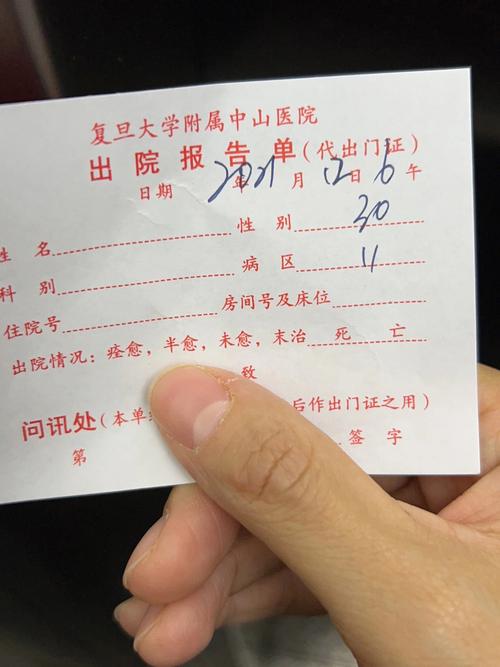 复旦大学附属中山医院
出院报告单(代出门证)
日期 2021年 月 12日 6 午
姓 名 性 别 30
科 别 病 区 11
住院号 房间号及床位
出院情况：痊愈，半愈，未愈，末治 死 亡
致
问讯处(本单 后作出门证之用)
第 签 字